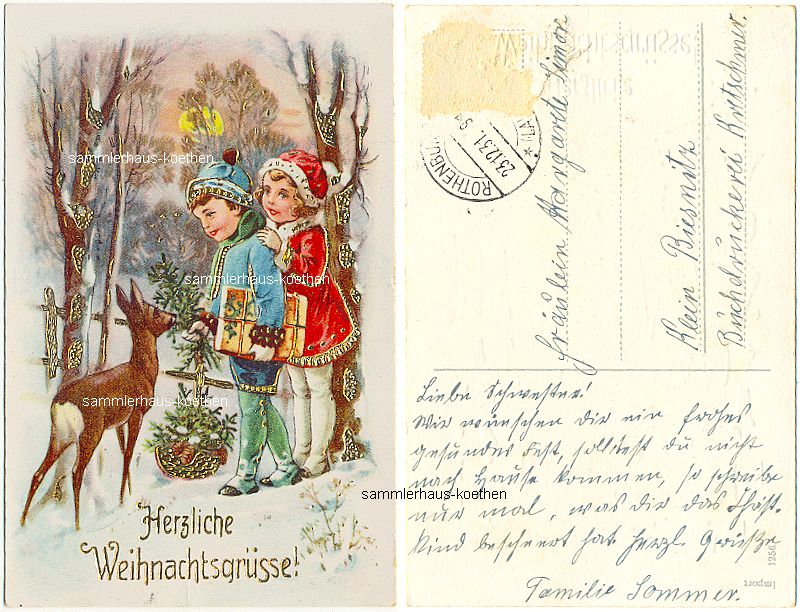 sammlerhaus-koethen
sammlerhaus-koethen
sammlerhaus-koethen
Herzliche
Weihnachtsgrüsse!
ROTHENBU
23.12.31. 9
Fräulein Margarete Simon
Klein Biesnitz
Buchdruckerei Kretschmer.
Liebe Schwester!
Wir wünschen dir ein frohes
gesundes Fest, solltest du nicht
nach Hause kommen, so schreibe
sammlerhaus-koethen
nur mal, was dir das Christ-
kind beschert hat Herzl. Grüße
Familie Sommer.
Import
1256